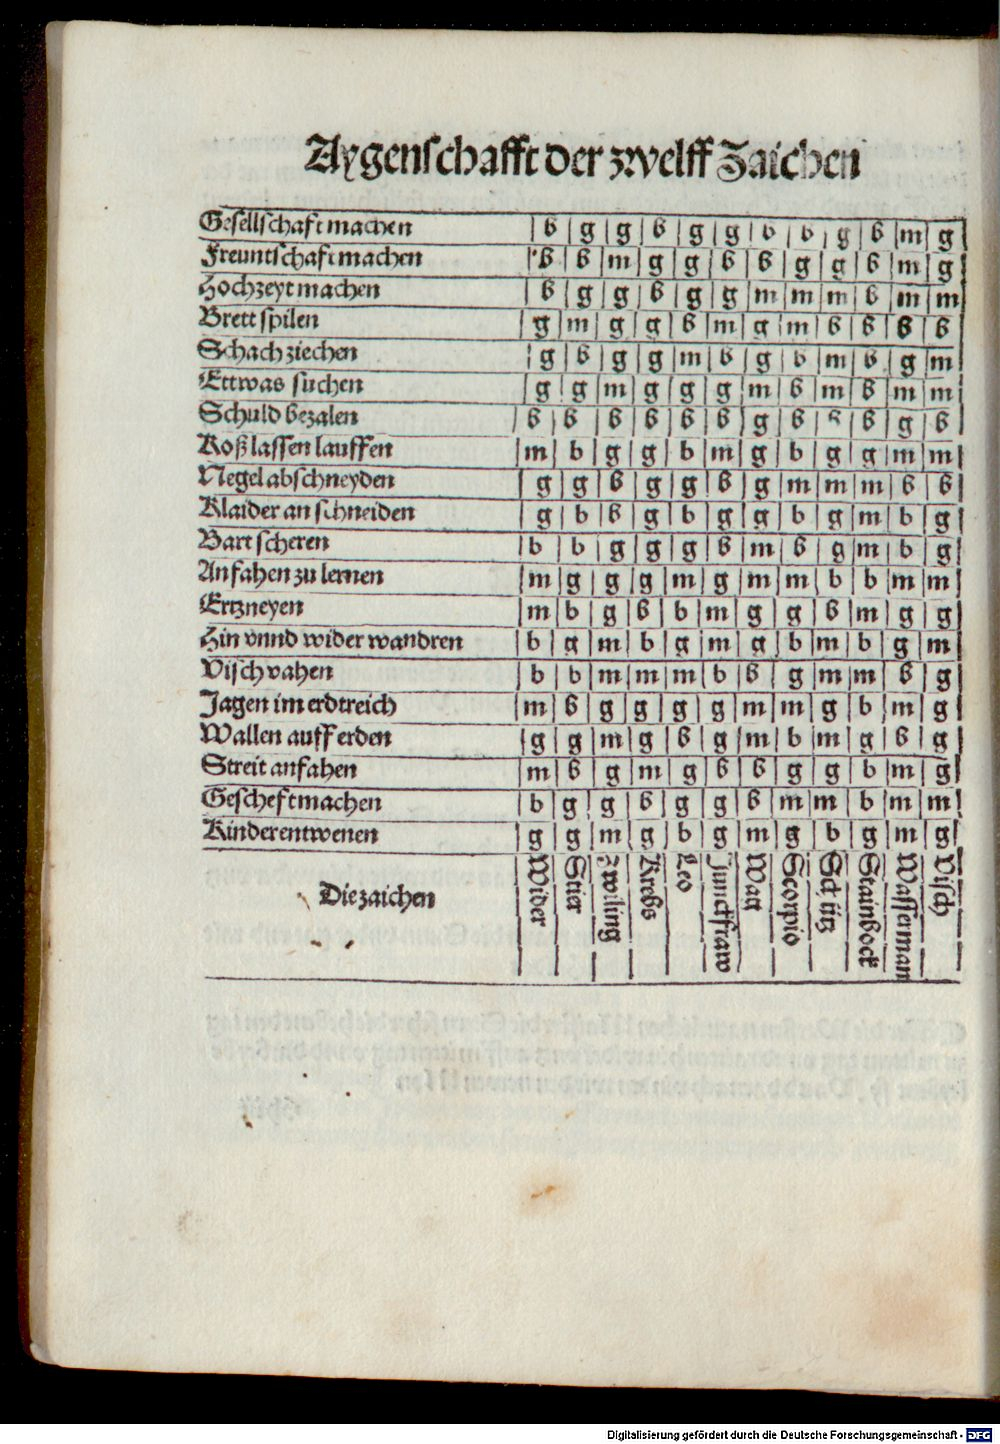 Aygenschafft der zwelff Zaichen
Gesellschaft machen b g g b g g b b g b m g
Freuntschaft machen b b m g g b b g g b m g
Hochzeyt machen b g g b g g m m m b m m
Brett spilen g m g g b m g m b b b b
Schach ziechen g b g g m b g b m b g m
Ettwas suchen g g m g g g m b m b m m
Schuld bezalen b b b b b b g b b g b
Roß lassen lauffen m b g g b m g b g g m m
Negel abschneyden g g b g g b g m m m b b
Klaider an schneiden g b b g b g g b g m b g
Bart scheren b b g g g b m b g m b g
Anfahen zu lernen m g g g m g m m b b m m
Ertzneyen m b g b b m g g b m g g
Hin vnnd wider wandren b g m b g m g b m b g m
Visch vahen b b m m m b b g m m b g
Jagen im erdtreich m b g g g g m m g b m g
Wallen auff erden g g m g b g m b m g b g
Streit anfahen m b g m g b b g g b m g
Gescheft machen b g g b g g b m m b m m
Kinder entwenen g g m g b g m g b g m g
Die zaichen Wider Stier Zwiling Krebs Leo Junckfraw Wag Scorpio Schütz Stainbock Wasserman Visch
Digitalisierung gefördert durch die Deutsche Forschungsgemeinschaft - DFG